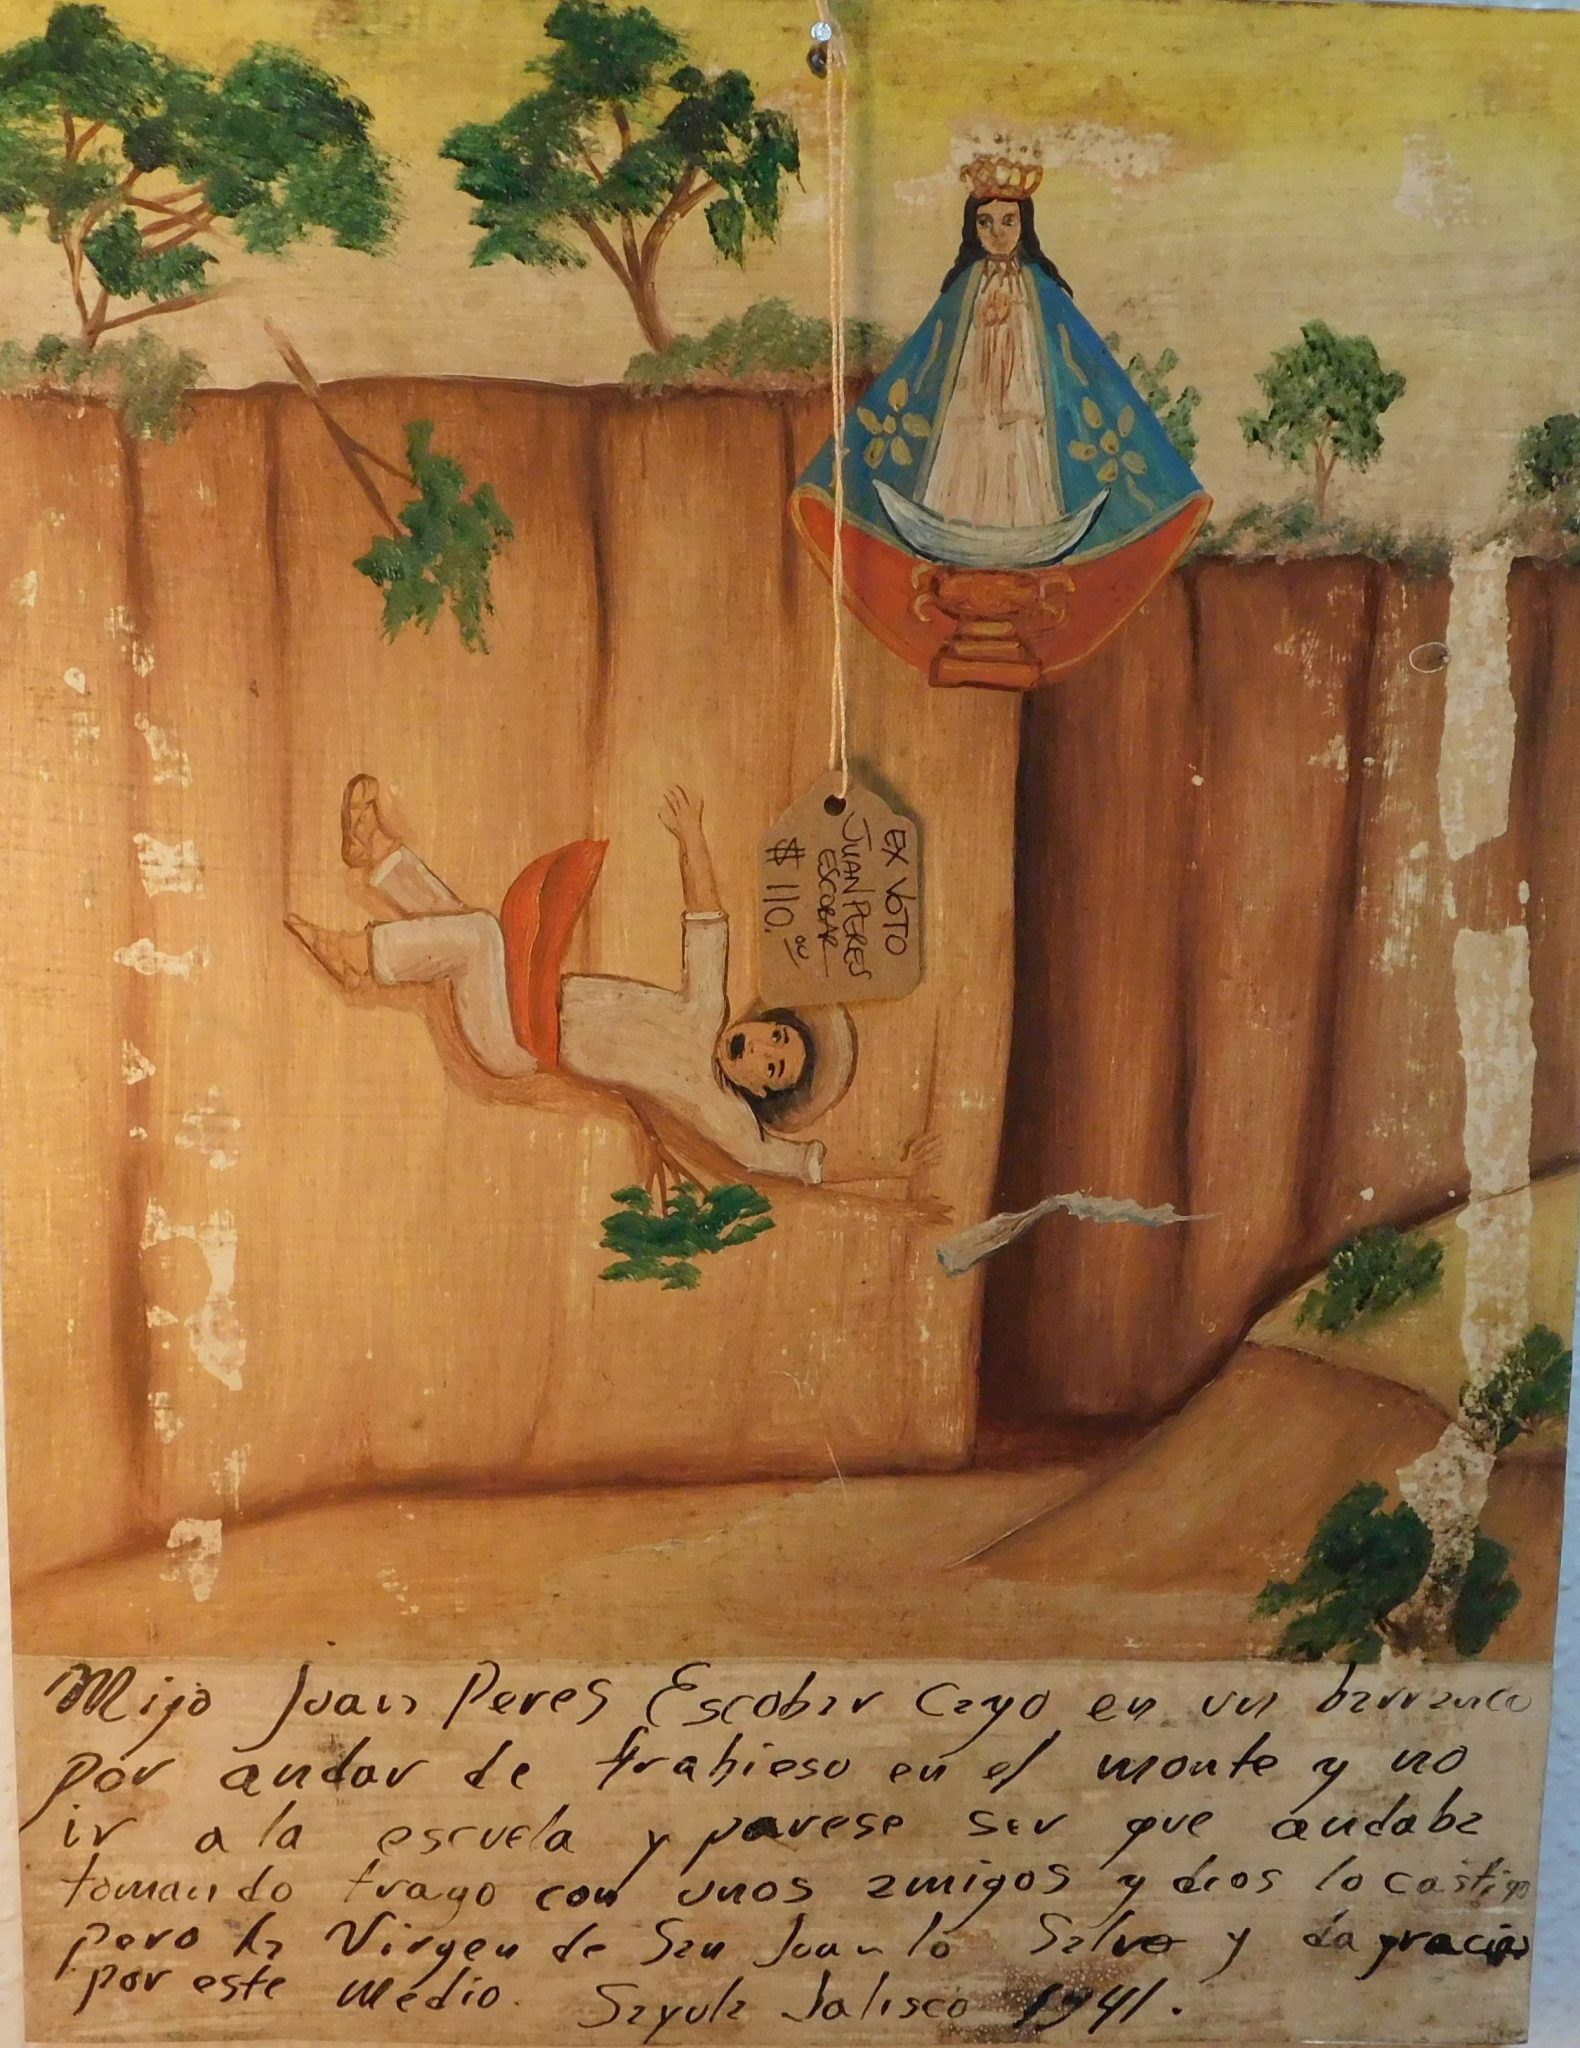 EX VOTO
JUAN PERES
ESCOBAR
$110.00
Mijo Juan Peres Escobar Cayo en un barranco
por andar de trabieso en el monte y no
ir a la escuela y parese ser que andaba
tomando trago con unos amigos y dios lo castigo
pero la Virgen de San Juan lo Salvo y da gracias
por este medio. Sayula Jalisco 1941.